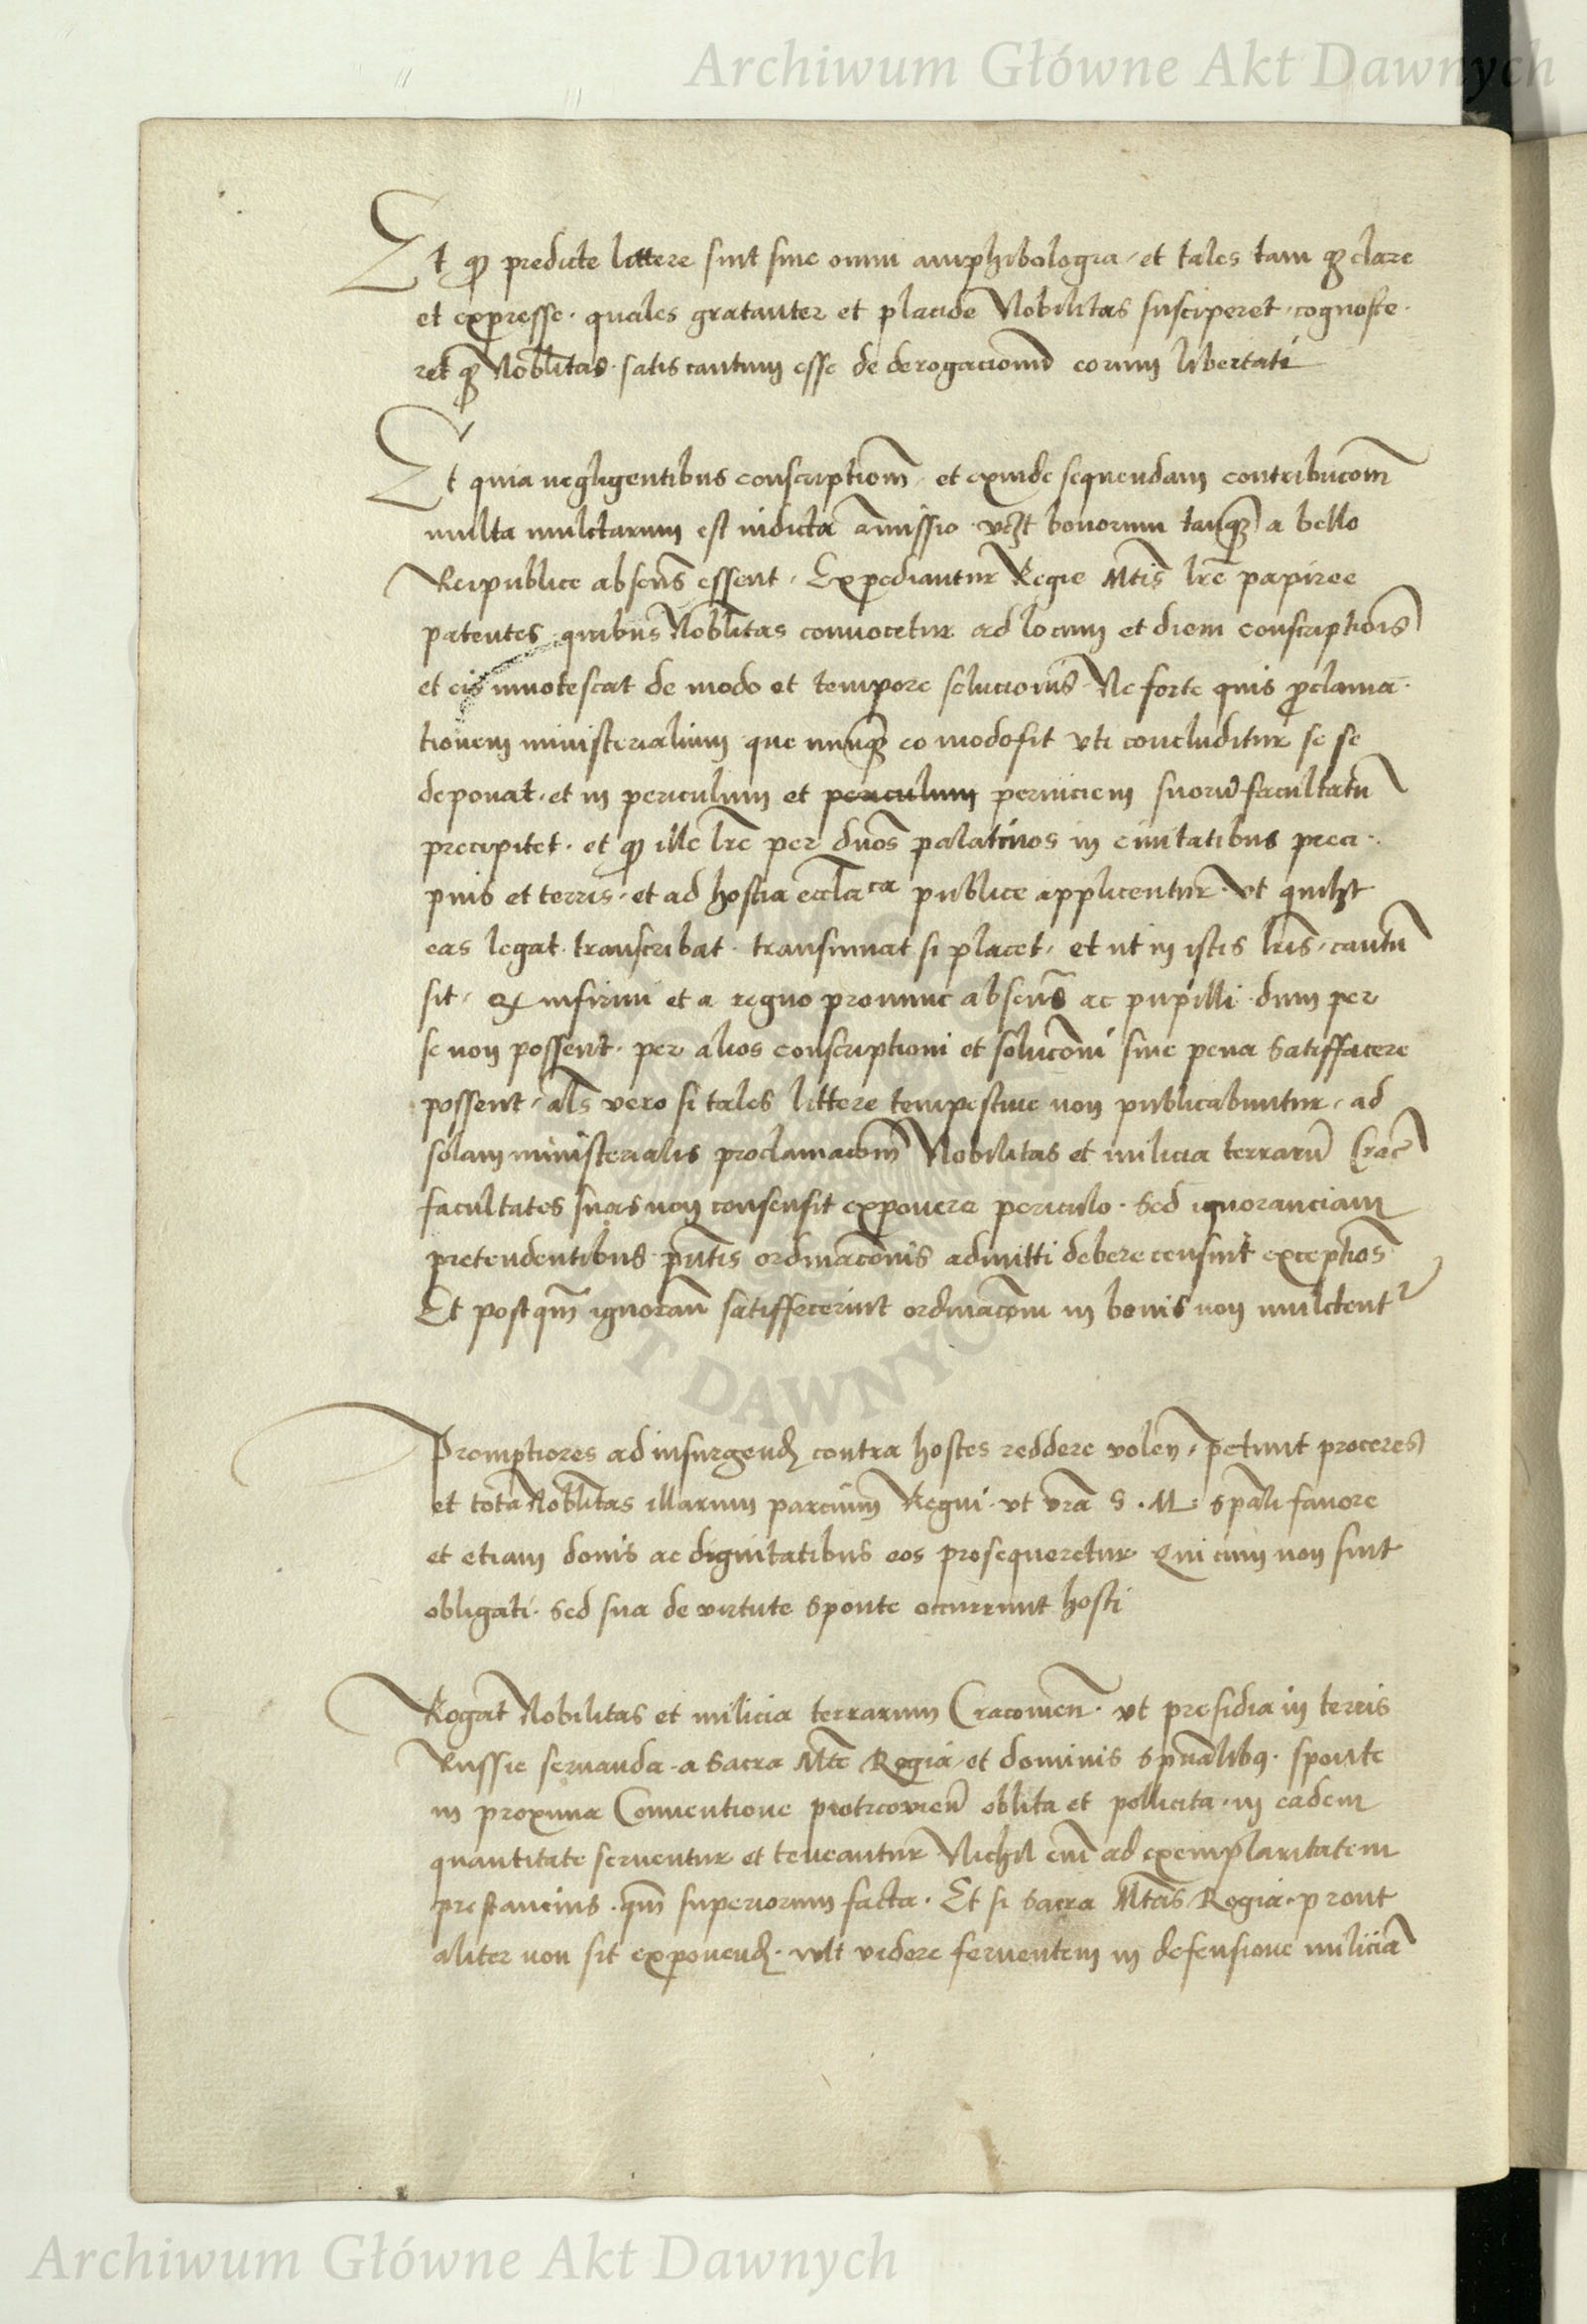 Archiwum Główne Akt Dawnych
Et qꝫ predicte littere sint sine omni amphibologia, et tales tam qꝫ clare
et expresse. quales gratanter et placide Nobilitas susciperet. cognosce.
ret qꝫ Nobłitas. satis cautum esse de derogacioni eorum libertati
Et quia negligentibus conscriptioȝ, et exinde sequendam contribucom̄
multa mulctarum est indicta am̄issio. vcȝt bonorum tanqꝫ a bello
Reipublice absen̄s essent, Expediantur Regie Mtis lr̄e papiree
patentes quibus Nobłitas convocetur ad locum et diem conscriptiois
et eis innotescat de modo et tempore solucionis. Ne forte quis proclama.
tionem ministerialium que nunqꝫ eo modo fit vti concluditur se se
deponat. et in periculum et periculum perniciem suorū facultatū
precipitet. et qꝫ ille lr̄e per dnōs palatinos in civitatibus preci.
puis et terris. et ad hostia eccl̄ia ca publice applicentur. vt quilꝫt
eas legat. transcribat. transsumat si placet, et ut in istis lr̄is, cautū
sit, ꝙ infirmi et a regno pronunc absen̄s ac pupilli. dum per
se non possent. per alios conscriptioni et soluc̄oni sine pena satisfacere
possent, al̄s vero si tales littere tempestive non publicabuntur, ad
solam ministerialis proclamac̄om Nobilitas et milicia terrarū Crac̄
facultates suas non consensit exponere periculo. Sed ignoranciam
pretendentibus pn̄tis ordinac̄onis admitti debere censuit exceptios̄
Et postqm̄ ignoran̄ satisffecerint ordinac̄oni in bonis non mulctentr
Promptiores ad insurgend̄ contra hostes reddere volen̄, petunt proceres
et tota Nobłitas illarum parcium Regni. vt vrā S. M. spāli favore
et etiam donis ac dignitatibus eos prosequeretur Qui cum non sint
obligati. Sed sua de virtute sponte occurrunt hosti
Rogat Nobilitas et milicia terrarum Cracovien̄. vt presidia in terris
Russie servanda. a Sacra Mte Regia, et dominis spūalibꝫ. sponte
in proxima Conventione piotrcovien̄ oblita et pollicita. in eadem
quantitate serventur et teneantur Nichil em̄ ad exemplaritatem
prestancius. qm̄ superiorum facta. Et si Sacra Mtas Regia. prout
aliter non sit exponend̄. vult videre ferventem in defensione miliciā
Archiwum Główne Akt Dawnych